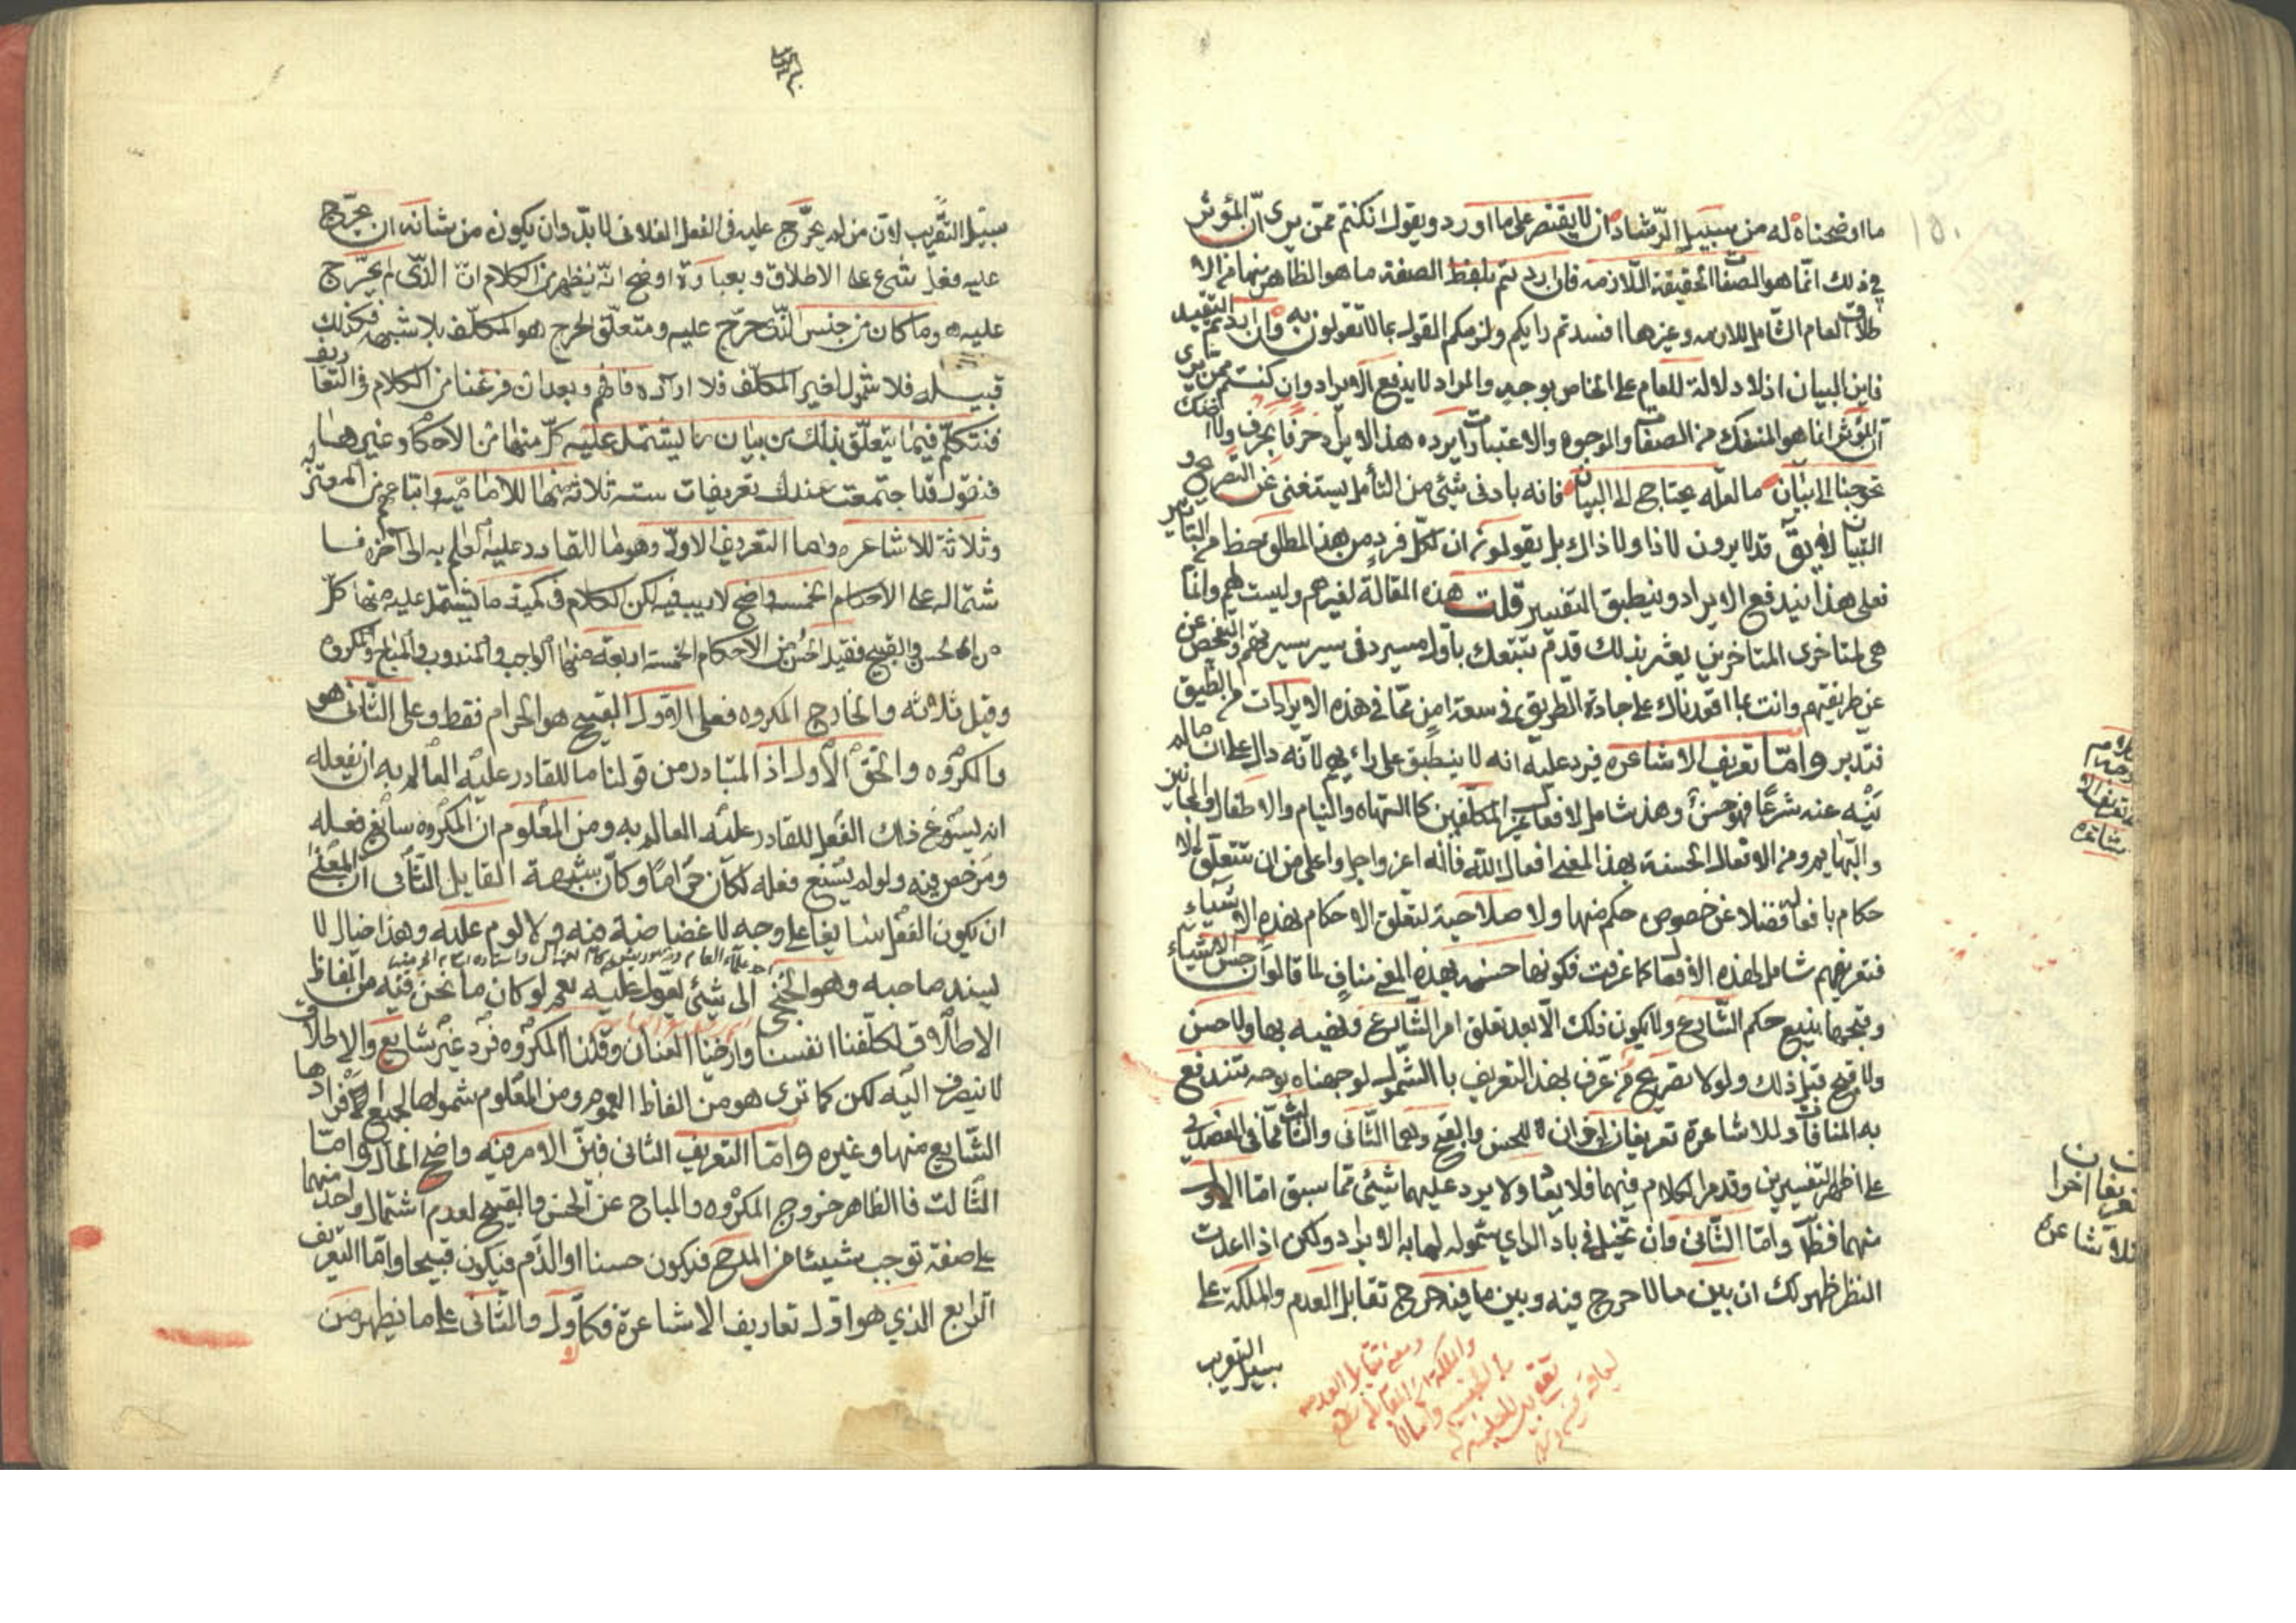 ما اوضحناه له من سبيل الرشاد ان لا يقتصر على ما اورد ويقول ان كنتم ممن يرى ان المؤثر
في ذلك انما هو الصفات الحقيقة اللازمة فان اردتم بلفظ الصفة ما هو الظاهر منها من الا
طلاق العام الشامل للازمه وغيرها افسدتم رايكم ولزمكم القول بما لا تقولون به وان اردتم التقييد
فاين البيان اذ لا دلالة للعام على الخاص بوجه والمراد لا يدفع الايراد وان كنتم ممن يرى
ان المؤثر انما هو المنفك من الصفات والوجوه والاعتبارات ايرده هذا الايراد حرفا بحرف ولا اظنك
تحوجنا الى بيان ما لعله يحتاج الى البيان فانه بادنى شيئ من التأمل يستغنى عن التصريح و
التبيان لا يق قد لا يرون لا ذا ولا ذاك بل يقولون ان لكل فرد من هذا المطلق حظا من التاثير
فعلى هذا يندفع الايراد وينطبق التفسير قلت هذه المقالة لغيرهم وليست لهم وانما
هى لمتاخرى المتاخرين يعثر بذلك قدم تتبعك باول مسير في سير سيرتهم والتفحص عن
عن طريقتهم وانت بما اقعدناك على جادة الطريق في سعة امن مما في هذه الايرادات من الضيق
فتدبر واما تعريف الاشاعره فيرد عليه انه لا ينطبق على رايهم لانه دال على ان ما لم
ينه عنه شرعا فهو حسن وهذا شامل لافعال غير المكلفين كالساه والنيام والاطفال والمجانين
والبهايم ومن الافعال الحسنة بهذا المعنى افعال الله فانه اعز واجل واعلى من ان تتعلق الا
حكام بافعاله فضلا عن خصوص حكم منها ولا صلاحية لتعلق الاحكام بهذه الاشياء
فتعريفهم شامل لهذه الافعال كما عرفت فكونها حسنه بهذا المعنى مناف لما قالوا ان حسن الاشياء
وقبحها يتبع حكم الشارع ولا يكون ذلك الا بعد تعلق امر الشارع ونهيه بها ولا حسن
ولا قبح قبل ذلك ولولا تصريح من عرف بهذا التعريف بالشمول لوجهناه بوجه تندفع
به المنافات وللاشاعرة تعريفان اخران للحسن والقبح وهما الثاني والثالث مما في العضدي
على اظهر التفسيرين وقد مر الكلام فيهما فلا يعاد ولا يرد عليهما شيئ مما سبق اما الاول
منهما فظ واما الثاني وان تخيل في بادي الراي شموله لهما به الايراد ولكن اذا اعدت
النظر ظهر لك ان بين ما لا حرج فيه وبين ما فيه حرج تقابل العدم والملكة على
سبيل التقريب
سبيل التقريب لان من لم يحرج عليه في الفعل الفلاني لا بد وان يكون من شانه ان يحرج
عليه فعل شئ على الاطلاق وبعبارة اوضح انه يظهر من الكلام ان الذي لم يحرج
عليه هو ما كان من جنس الذي يحرج عليه ومتعلق الحرج هو المكلف بلا شبهه فكذلك
قبيله فلا شمول لغير المكلف فلا ايراد فافهم وبعد ان فرغنا من الكلام في التعاريف
فنتكلم فيما يتعلق بذلك من بيان ما يشتمل عليه كل منها من الاحكام وغيرها
فنقول قد اجتمعت عندك تعريفات سته ثلاثه منها للاماميه واتباعهم من المعتزله
وثلاثة للاشاعره واما التعريف الاول وهو ما للقادر عليه العلم به الى آخره فا
شتماله على الاحكام الخمسه واضح لا ريب فيه لكن الكلام في كمية ما يشتمل عليه منها كل
من الحسن والقبيح فقيل الحسن من الاحكام الخمسة اربعة منها الواجب والمندوب والمباح والمكروه
وقيل ثلاثه والخارج المكروه فعلى القول القبيح هو الحرام فقط وعلى الثاني هو
والمكروه والحق الاول اذ المتبادر من قولنا ما للقادر عليه العالم به ان يفعله
انه يسوغ ذلك الفعل للقادر عليه العالم به ومن المعلوم ان المكروه سائغ فعله
ومرخص فيه ولو لم يسغ فعله لكان حراما وكان شبهة القايل الثاني ان المعنى
ان يكون الفعل سايغا على وجه لا غضاضة فيه ولا لوم عليه وهذا خيال لا
يسند صاحبه وهو الخنجي الى شيئ يعول عليه نعم لو كان ما نحن فيه من الفاظ
الاطلاق لكلفنا انفسنا وارخينا العنان وقلنا المكروه فرد غير شايع والاطلاق
لا ينصرف اليه لكن كما ترى هو من الفاظ العموم ومن المعلوم شمولها لجميع افرادها
الشايع منها وغيره واما التعريف الثاني فبين الامر فيه واضح الحال واما
الثالث فالظاهر خروج المكروه والمباح عن الحسن والقبيح لعدم اشتمال واحد منهما
على صفة توجب شيئا من المدح فيكون حسنا او الذم فيكون قبيحا واما التعريف
الرابع الذي هو اول تعاريف الاشاعرة فكالاول والثاني على ما يظهر من